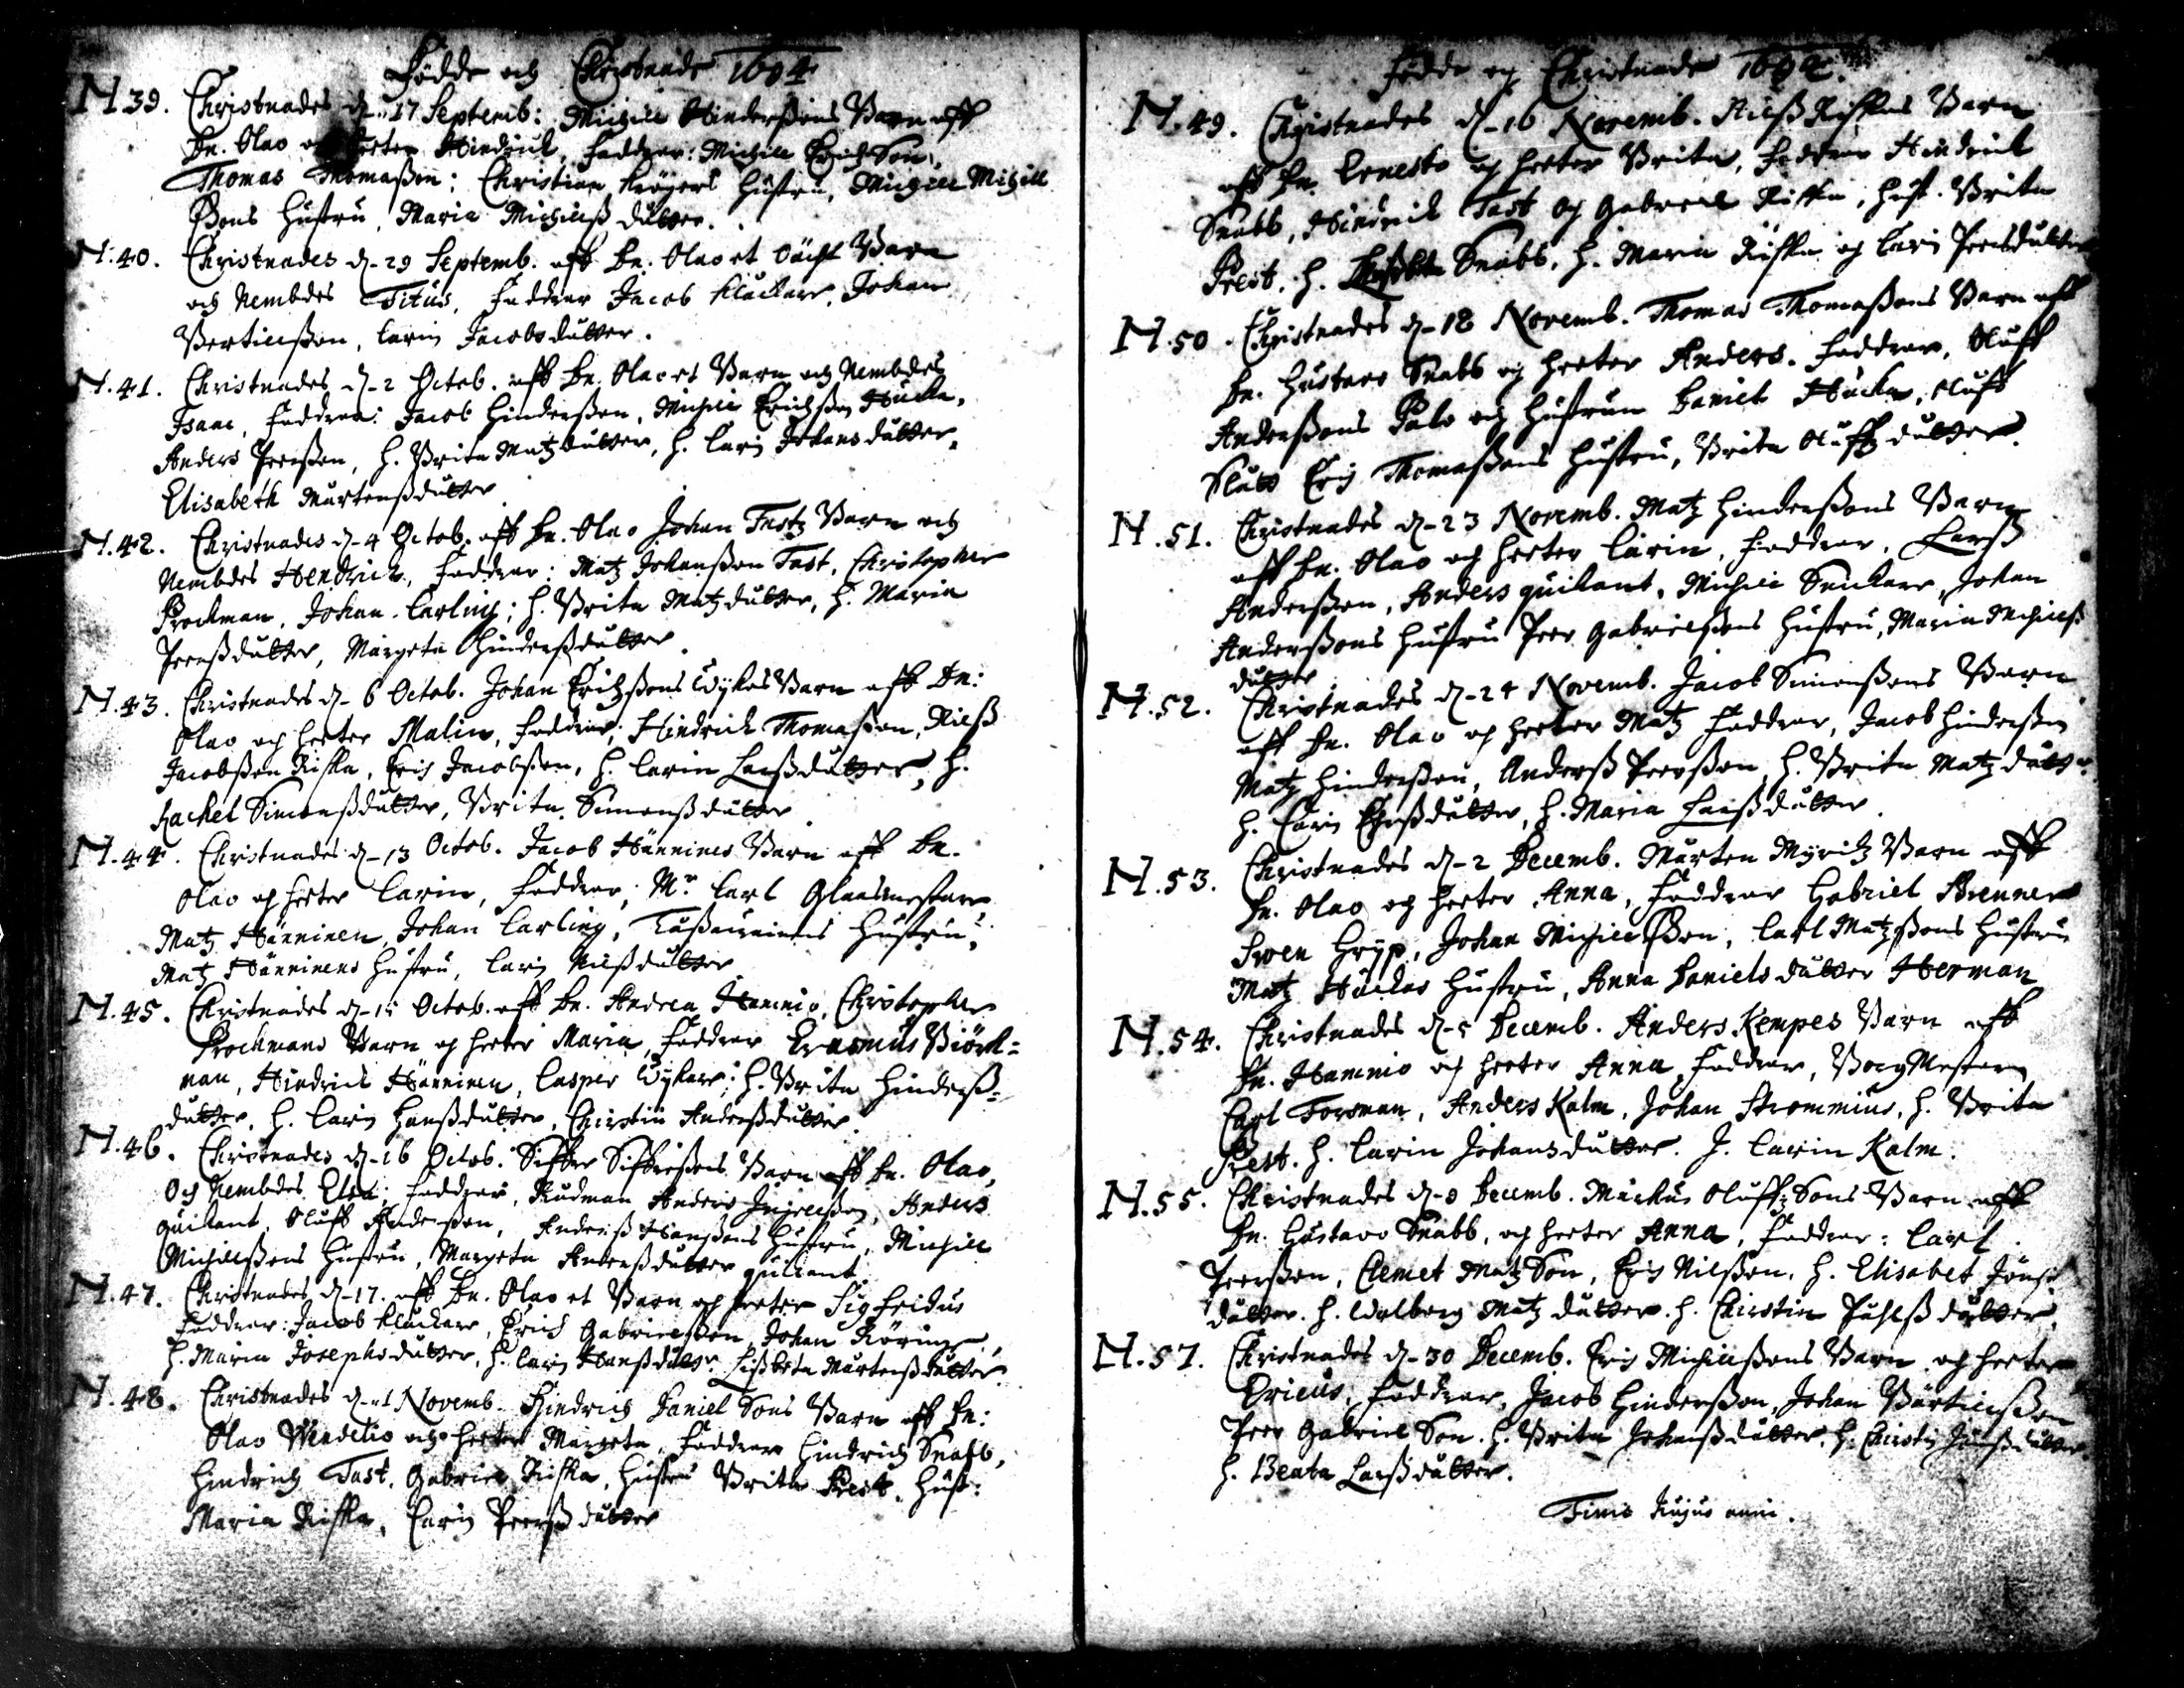 Födde och Christnade 1694
N 39. Christnades d. 17 Septemb: Michill Hinderßons Barn aff
Dn. Olao heeter Hindrick, faddrar: Michill Erich Son,
Thomas Thomaßon; Christian Krögers hustru, Michill Michill
ßons hustru, Maria Michillß dutter.
N. 40. Christnades d. 29 Septemb. aff Dn. Olao et Barn
och Nembdes Titus, faddrar Jacob Kluckare, Johan
Bertillßon, Carin Jacobs dutter.
N. 41. Christnades d. 2 Octob. aff Dn. Olao et Barn och Nembdes
Isaac, faddrar: Jacob Hinderßon, Michill Erichßon Hucka,
Anders Peerßon, H. Brita Matzdutter, H. Carin Johans dutter,
Elisabeth Mårtenßdutter
N. 42. Christnades d. 4 Octob. aff Dn. Olao Johan Tastz Barn och
Nembdes Hendrich, faddrar: Matz Johanßon Tast, Christopher
Brockman, Johan Carling; H. Brita Matzdutter, H. Maria
Peerßdutter, Margeta Hinderßdutter.
N. 43. Christnades d. 6 Octob. Johan Erichßons Wykas Barn aff Dn:
Olao och heeter Malin, faddrar; Hindrich Thomaßon, Nilß
Jacobßon Riska, Erich Jacobßon, H. Carin Larßdutter, H.
Rachel Simonßdutter, Brita Simonßdutter
N. 44. Christnades d. 13 Octob. Jacob Hänninens Barn aff Dn.
Olao och heeter Carin, faddrar; Mr. Carl Glaasmestare
Matz Hänninen, Johan Carling, hustru,
Matz Hänninens hustru, Carin Nilßdutter
N. 45. Christnades d. 15 Octob. aff Dn. Andrea Hamnio, Christopher
Brockmans Barn och heeter Maria, faddrar Erasmus Biörk-
man, Hindrich Hänninen, Casper Wykare; H. Brita Hinderß-
dutter, H. Carin Hanßdutter, Christin Anderßdutter.
N. 46. Christnades d. 16 Octob. Siffre Siffreßons Barn aff Dn. Olao,
Och Nembdes Elsa; faddrar, Rudman Anders, Anders
Quikant, Oluff Anderßon, Anderß Hanßons hustru, Michill
Michillßons hustru, Margeta Anderßdutter Quikant
N. 47. Christnades d. 17. aff Dn. Olao et Barn och heeter Sigfridus
faddrar: Jacob Kluckare, Erich Gabrielßon, Johan Röring,
H. Maria Josephsdutter, H. Carin Hanßdutter. Lißbeta Mårtenßdutter.
N. 48. Christnades d. 1 Novemb. Hindrich Daniel Sons Barn aff Dn:
Olao Wendelio och heeter Margeta, faddrar Hindrich Snabb,
Hindrich Tast, Gabriel Riska, hustru Brita Prest, hust:
Maria Riska, Carin Peerßdutter
Födde och Christnade 1694.
N. 49. Christnades d. 16 Novemb. Nilß Riskas Barn
aff Dn. Ernesto och heeter Brita, faddrar Hindrick
Snabb, Hindrich Tast och Gabriel Riska, hust. Brita
Prest, H. Snabb, H. Maria Riska och Carin Peersdutter
N. 50. Christnades d. 18 Novemb. Thomas Thomaßons Barn aff
Dn. Gustavo Snabb och heeter Anders. faddrar, Oluff
Anderßons Palo och hustrun Daniel Hucka, Oluff
Slätt Erich Thomaßons hustru, Brita Oluffz dutter.
N. 51. Christnades d. 23 Novemb. Matz Hinderßons Barn
aff Dn. Olao och heeter Carin, faddrar, Larß
Anderßon, Anders Quikant, Michill Snickare, Johan
Anderßons hustru Peer Gabrielßons hustru, Maria Michillß
dutter
N. 52. Christnades d. 24 Novemb. Jacob Simonßons Barn
aff Dn. Olao och heeter Matz faddrar, Jacob Hinderßon
Matz Hinderßon, Anderß Peerßon, H. Brita Matz dutter
H. Carin dutter, H. Maria Larßdutter.
N. 53. Christnades d. 2 Decemb. Mårten Myritz Barn aff
Dn. Olao och heeter Anna, faddrar Gabriel Brenner
Swen Gryp, Johan Michillßon, Carl Matzßons hustru
Matz Huckas hustru, Anna Daniels dutter Herman
N. 54. Christnades d. 5 Decemb. Anders Kempes Barn aff
Dn. Hamnio och heeter Anna, faddrar, BorgMestare
Carl Forsman, Anders Kalm, Johan Strommius, H. Brita
Prest. H. Carin Johans dutter. J. Carin Kalm.
N. 55. Christnades d. 8 Decemb. Markus Oluffz Sons Barn aff
Dn. Gustavo Snabb, och heeter Anna, faddrar: Carl
Peerßon, Clemet Matz Son, Erich Nilßon. H. Elisabet Jönß
dutter. H. Walborg Matz dutter. H. Christin Påhlß dutter.
N. 57. Christnades d. 30 Decemb. Erich Michillßons Barn och heeter
Ericus, faddrar, Jacob Hinderßon, Johan Bärtillßon
Peer Gabriel Son. H. Brita Johanßdutter, H. Christin dutter
H. Beata Larßdutter.
Finis hujus anni.